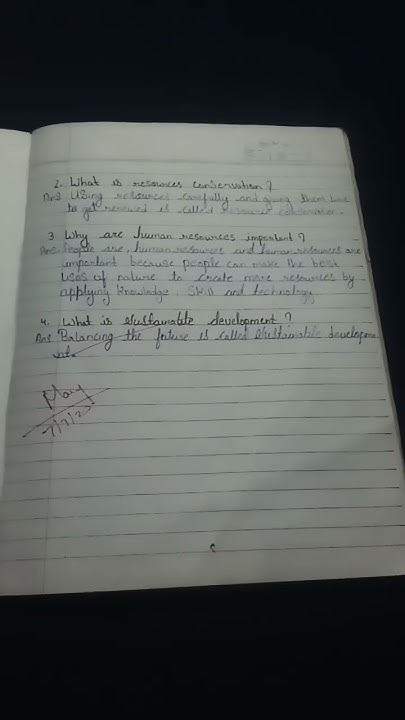 2. What is resources conservation?
Ans Using resources carefully and giving them time
to get renewed is called resource conservation.
3 Why are human resources important?
Ans. People are, human resources and human resources are
important because people can make the best
uses of nature to create more resources by
applying knowledge, skill and technology
4. What is sustainable development?
Ans Balancing the future is called sustainable developme
nt.
7/7/23